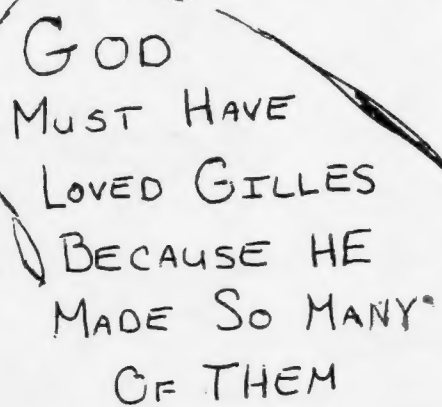 GOD
MUST HAVE
LOVED GILLES
BECAUSE HE
MADE SO MANY
OF THEM